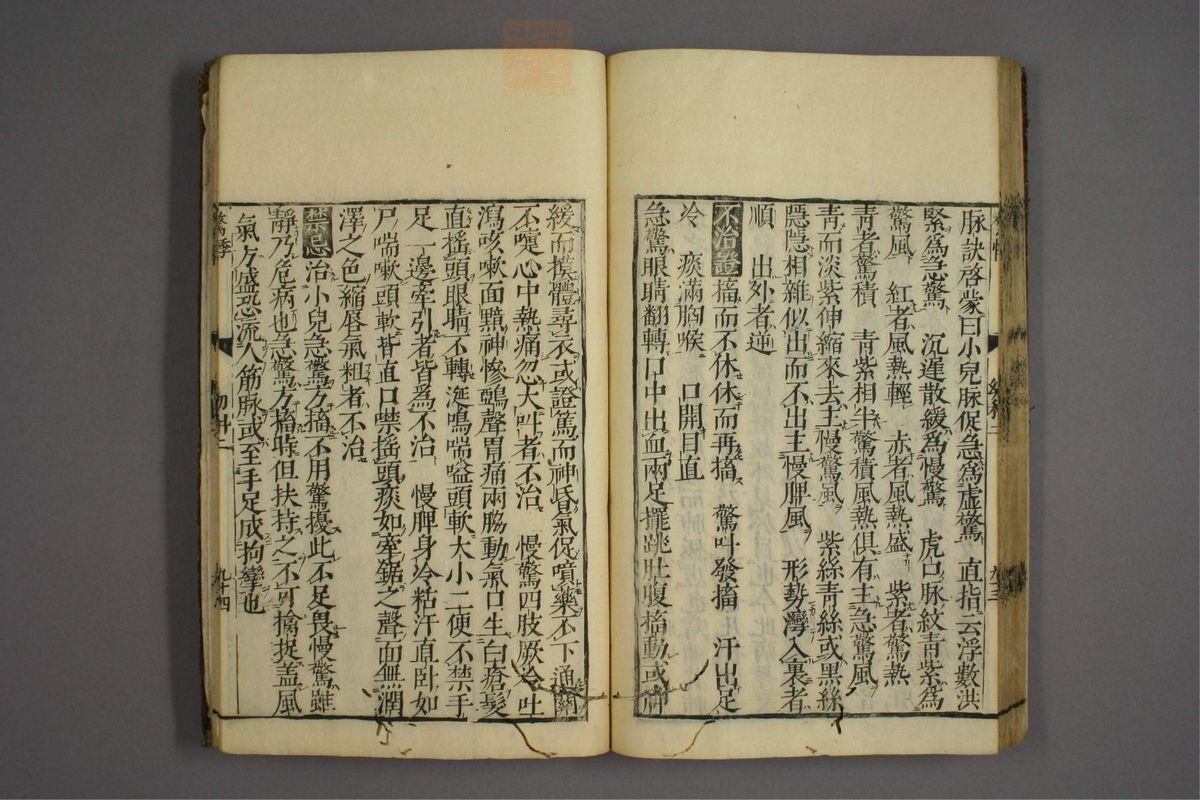 脉訣啓蒙曰小兒脉促急爲虛驚　直指云浮數洪
緊爲急驚　沉遲散緩爲慢驚　虎口脉紋青紫爲
驚風　紅者風熱輕　赤者風熱盛　紫者驚熱
青者驚積　青紫相半驚積風熱俱有主急驚風
青而淡紫伸縮來去主慢驚風　紫絲青絲或黑絲
隱隱相雜似出而不出主慢脾風　形勢灣入裏者
順　出外者逆
不治證搐而不休休而再搐　驚叶發搐　汗出足
冷　痰滿胸喉　口開目直
急驚眼睛翻轉口中出血兩足擺跳肚腹搐動或神
緩而摸體尋衣或證篤而神昏氣促噴藥不下通關
不嚏心中熱痛忽大叫者不治　慢驚四肢厥冷吐
瀉咳嗽面黯神慘鴉聲胃痛兩脇動氣口生白瘡髮
直搖頭眼睛不轉涎鳴喘嗌頭軟大小二便不禁手
足一邊牽引者皆爲不治　慢脾身冷粘汗直卧如
尸喘嗽頭軟背直口噤搖頭痰如牽鋸之聲面無潤
澤之色縮唇氣粗者不治
禁忌治小兒急驚方搐不用驚擾此不足畏慢驚雖
靜乃危病也急驚方搐時但扶持之不可擒捉盖風
氣方盛恐流入筋脉或至手足成拘攣也
九十四